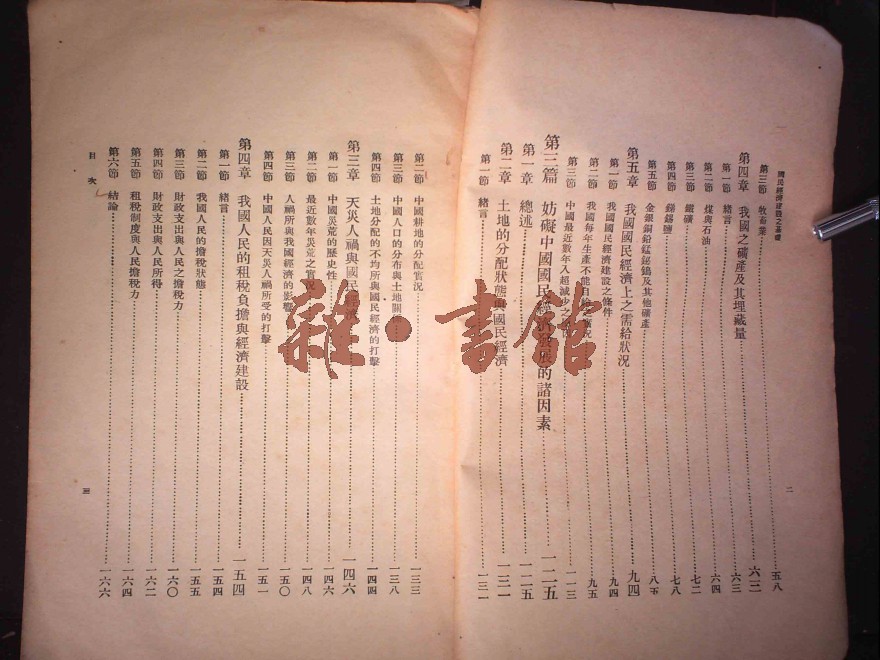 國民經濟建設之基礎
二
第三節 牧畜業 五八
第四章 我國之礦產及其埋藏量 六三
第一節 緒言 六三
第二節 煤與石油 六四
第三節 鐵礦 七二
第四節 錫鹽 七八
第五節 金銀銅鉛錳鉍鎢及其他礦產 八五
第五章 我國國民經濟上之需給狀況 九四
第一節 我國國民經濟建設之條件 九四
第二節 我國每年生產不能自給之 九五
第三節 中國最近數年入超減少之 一一三
第三篇 妨礙中國國民經濟發展的諸因素 一二五
第一章 總述 一二五
第二章 土地的分配狀態與國民經濟 一三一
第一節 緒言 一三一
第二節 中國耕地的分配實況 一三三
第三節 中國人口的分布與土地關 一三八
第四節 土地分配的不均所與國民經濟的打擊 一四四
第三章 天災人禍與國民 一四六
第一節 中國災荒的歷史性 一四六
第二節 最近數年災荒之實況 一四八
第三節 人禍所與我國經濟的影響 一五〇
第四節 中國人民因天災人禍所受的打擊 一五一
第四章 我國人民的租稅負擔與經濟建設 一五四
第一節 緒言 一五四
第二節 我國人民的擔稅狀態 一五五
第三節 財政支出與人民之擔稅力 一六〇
第四節 財政支出與人民所得 一六二
第五節 租稅制度與人民擔稅力 一六四
第六節 結論 一六六
目次
三
雜·書館